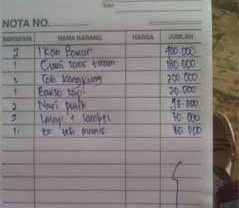 NOTA NO.
BANYAKNYA NAMA BARANG HARGA JUMLAH
2 Ikan Bakar 400 000
1 Cumi saos tiram 180 000
2 Cah Kangkung 200 000
1 20.000
2 Nasi putih 90.000
2 Lalap + Sambel 40.000
11 es teh manis 80 000